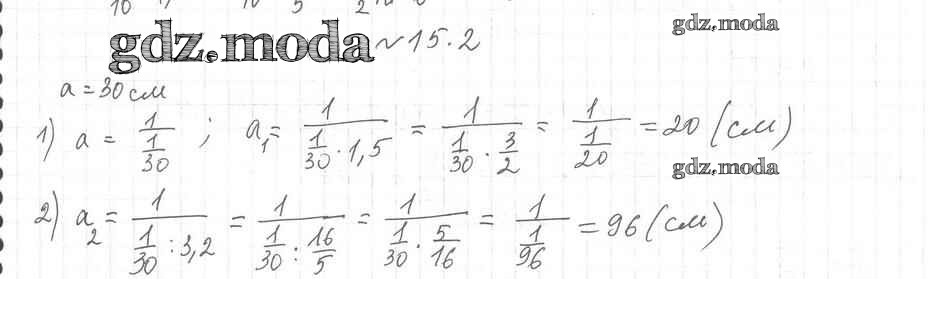 gdz.moda
gdz.moda ~ 15.2
a = 30 см
1) a = 1/(1/30) ; a₁ = 1/(1/30 · 1,5) = 1/(1/30 · 3/2) = 1/(1/20) = 20 (см)
gdz.moda
2) a₂ = 1/(1/30 : 3,2) = 1/(1/30 : 16/5) = 1/(1/30 · 5/16) = 1/(1/96) = 96 (см)